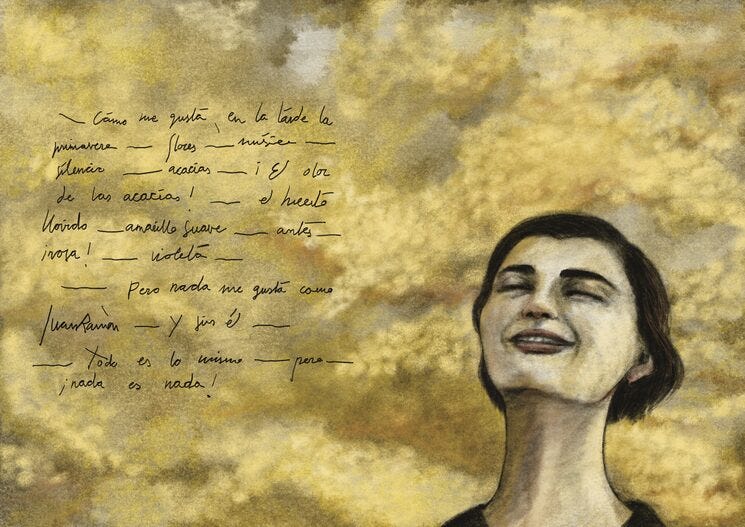 — Cómo me gusta, en la tarde la
primavera — flores — música —
silencio — acacias — ¡El olor
de las acacias! — el huerto
llovido — amarillo suave — antes —
¡rosa! — violeta —
— Pero nada me gusta como
Juan Ramón — Y sin él —
— Todo es lo mismo — pero —
¡nada es nada!